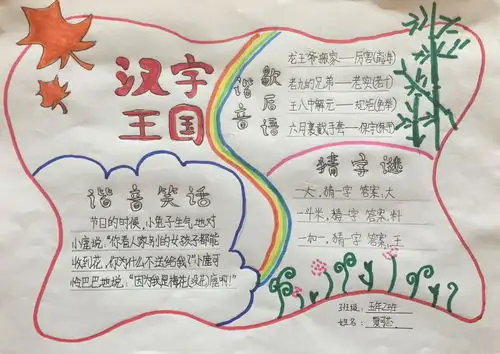 汉字
王国
谐音
歇后语
龙王爷搬家——厉害(离海)
老九的兄弟——老实(老十)
王八中解元——规矩(龟举)
六月裹戴手套——保守(保手)
谐音笑话
节日的时候,小兔子生气地对
小鹿说:"你看人家别的女孩子都能
收到花,你为什么不送给我?"小鹿可
怜巴巴地说:"因为我是梅花(没花)鹿啊!"
猜字谜
一大,猜一字 答案:大
一斗米,猜一字 答案:料
一加一,猜一字 答案:王
班级:五年2班
姓名: